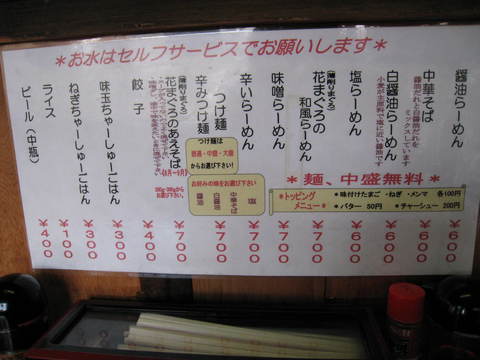 ＊お水はセルフサービスでお願いします＊
醤油らーめん ￥600
中華そば
醤油だれと白醤油だれを
ミックスしています
￥600
白醤油らーめん
小麦が主原料で塩に近い醤油です
￥600
塩らーめん ￥600
(薄削りまぐろ)
花まぐろの
和風らーめん
￥700
味噌らーめん ￥700
辛いらーめん ￥700
つけ麺 ￥700
辛みつけ麺 ￥700
つけ麺は
普通・中盛・大盛
からお選び下さい!
お好みの味をお選び下さい!
塩
中華そば
白醤油
醤油
(薄削りまぐろ)
花まぐろのあえそば
￥700
餃子 ￥400
味玉ちゃーしゅーごはん ￥300
ねぎちゃーしゅーごはん ￥300
ライス ￥100
ビール（中瓶） ￥400
＊麺、中盛無料＊
＊トッピング
メニュー＊
•味付けたまご •ねぎ •メンマ 各100円
•バター 50円 •チャーシュー 200円